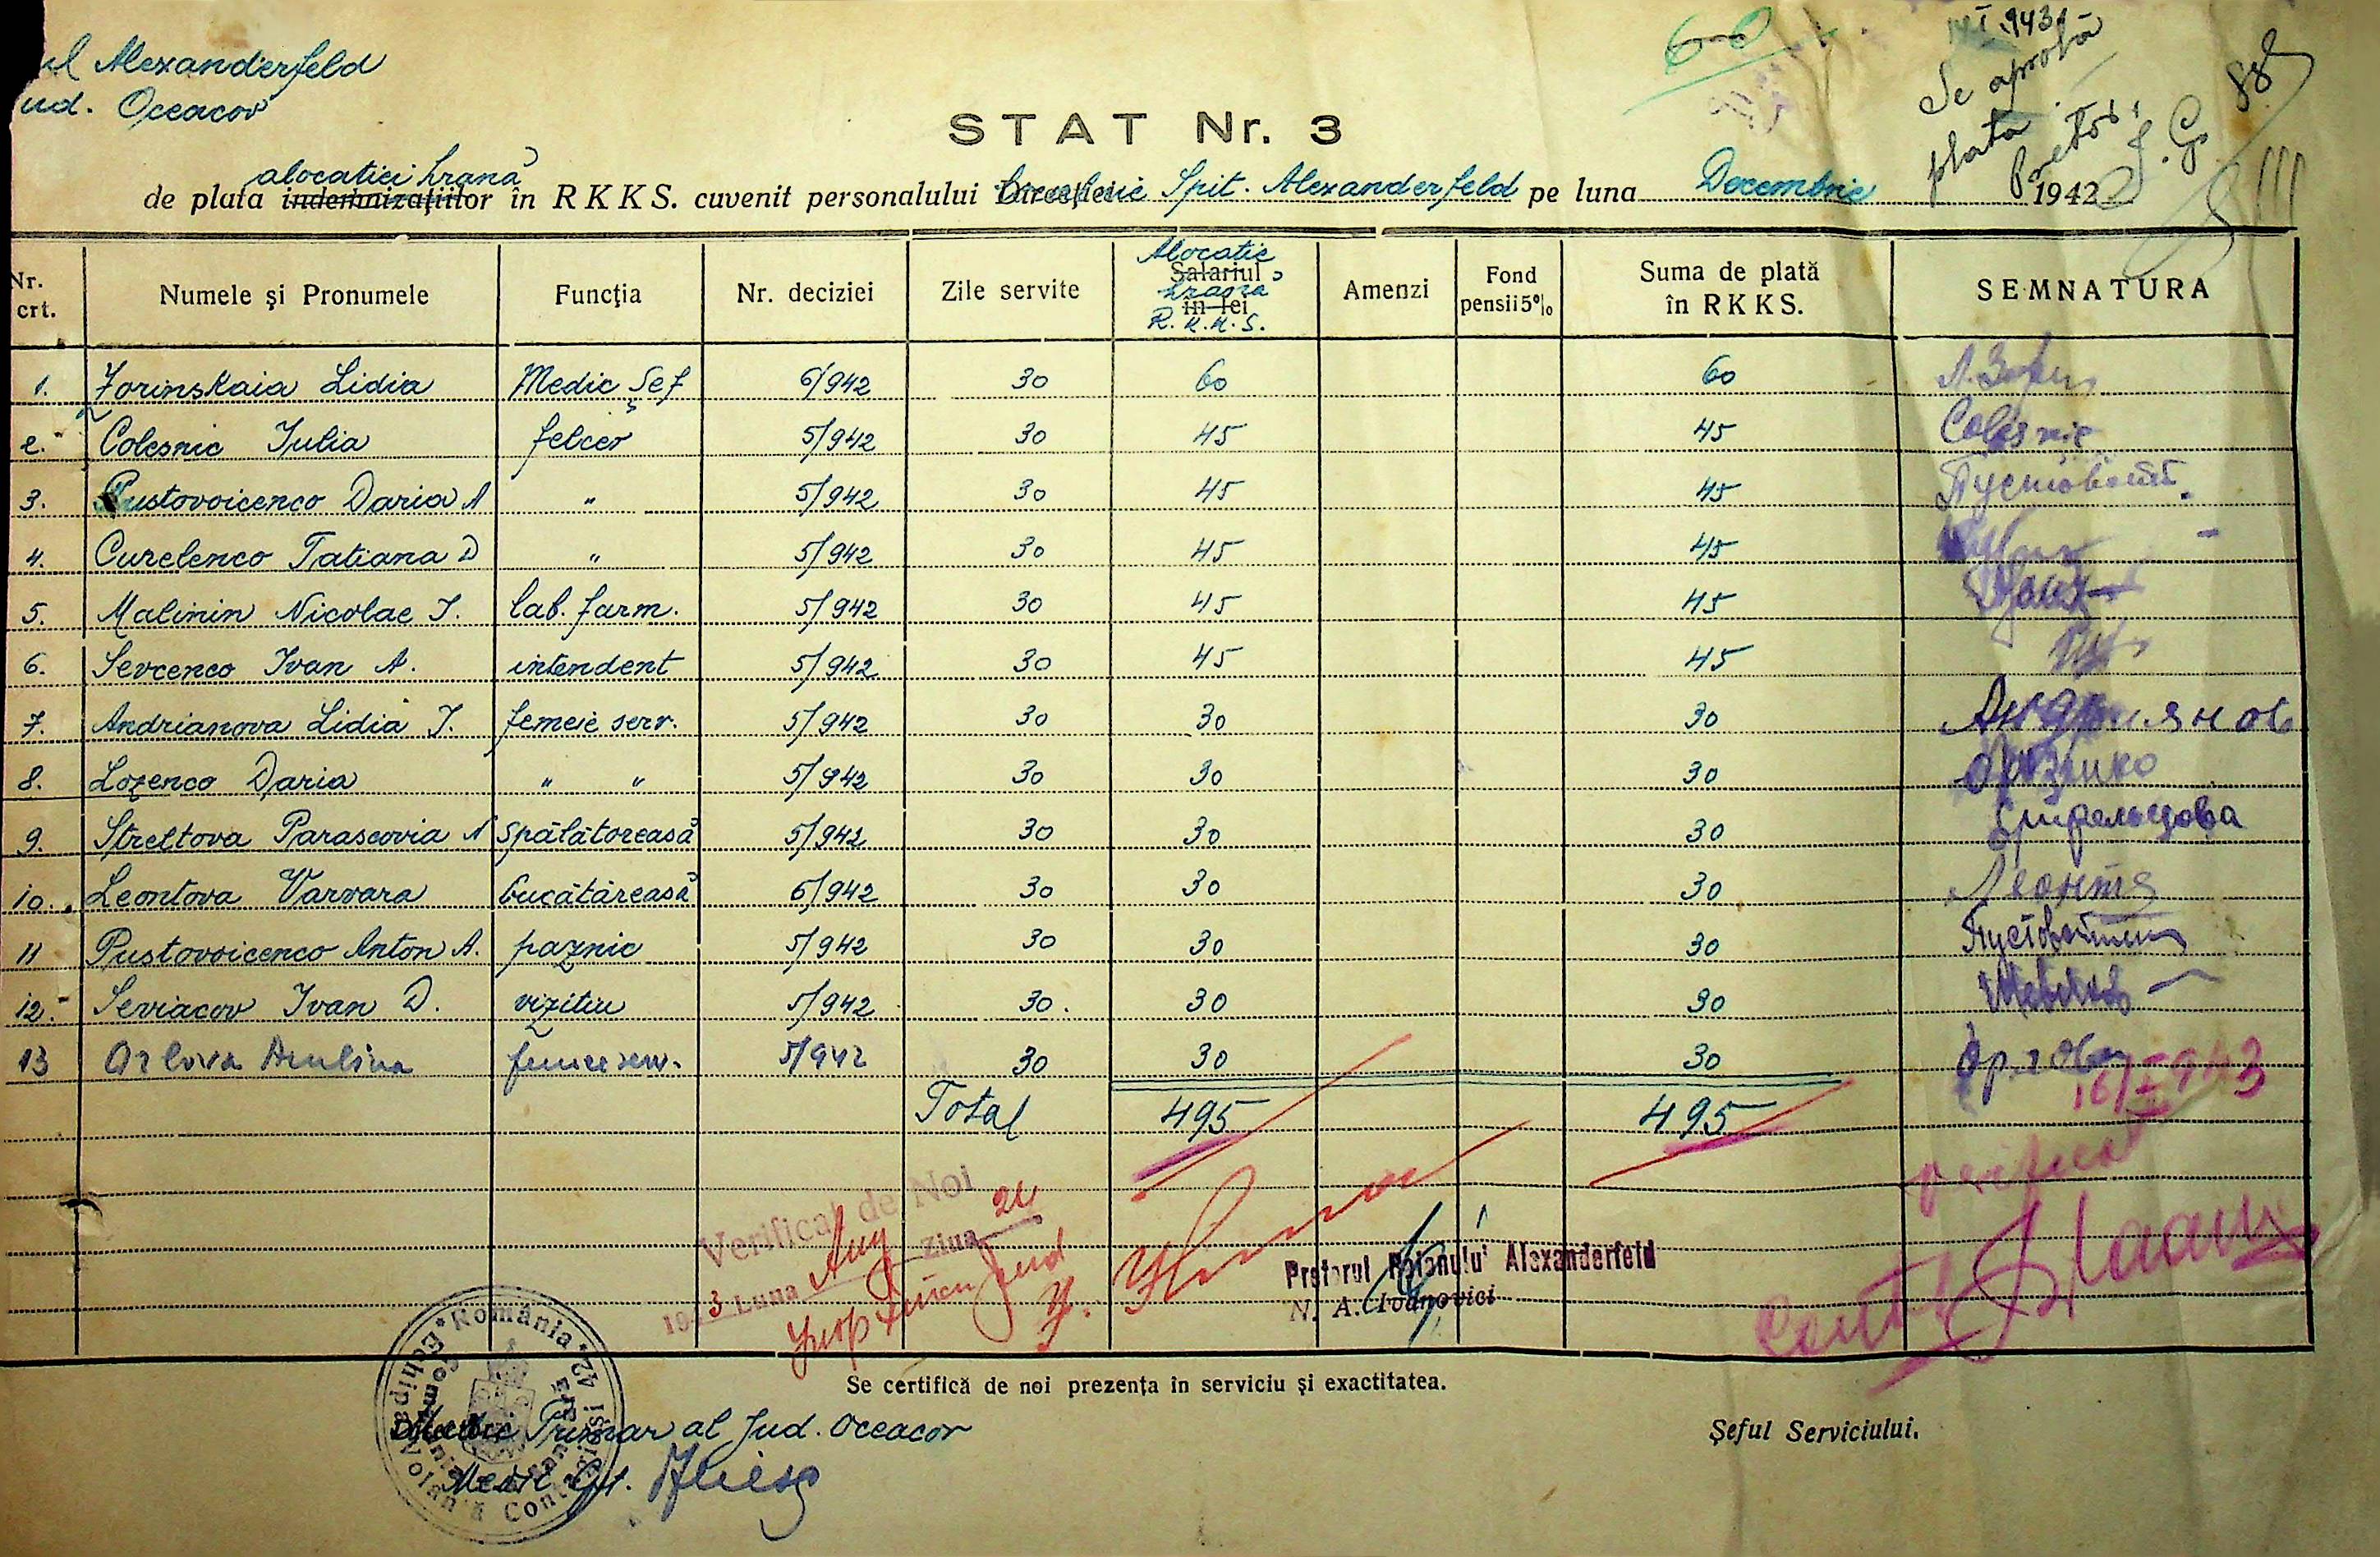 Alexanderfeld
ud. Oceacov
60
IVI 943
Se aprobă
plata
Pretor,
88
STAT Nr. 3
alocatiei hrană
de plata indemnizațiilor în RKKS. cuvenit personalului Direcției Spit. Alexanderfeld pe luna Decembrie 1942
Nr. crt. Numele şi Pronumele Funcţia Nr. deciziei Zile servite Alocatie Salariul hrană în lei R.K.K.S. Amenzi Fond pensii 5% Suma de plată în RKKS. SEMNATURA
1. Zorinskaia Lidia Medic Şef 6/942 30 60 60
2. Colesnic Iulia felcer 5/942 30 45 45 Colesnic
3. Pustovoicenco Daria A " 5/942 30 45 45
4. Curelenco Tatiana D " 5/942 30 45 45
5. Malinin Nicolae I. lab. farm. 5/942 30 45 45
6. Sevcenco Ivan A. intendent 5/942 30 45 45
7. Andrianova Lidia I. femeie serv. 5/942 30 30 30
8. Lozenco Daria " " 5/942 30 30 30
9. Streltova Parascovia N spălătoreasă 5/942 30 30 30
10. Leontova Varvara bucătăreasă 6/942 30 30 30
11 Pustovoicenco Anton A. paznic 5/942 30 30 30
12. Seviacov Ivan D. vizitiu 5/942 30. 30 30
13 Orlova Aculina femeie serv. 5/942 30 30 30
16/I 943
Total 495 495
Verificat
Verificat de Noi
1943 Luna Aug Ziua 24
Pretorul Raionului Alexanderfeld
N. A. Ioanovici
Se certifică de noi prezenţa în serviciu şi exactitatea.
România
Echipa Volantă Control
Medic Primar al Jud. Oceacov
Şeful Serviciului.
Medic Cpt.